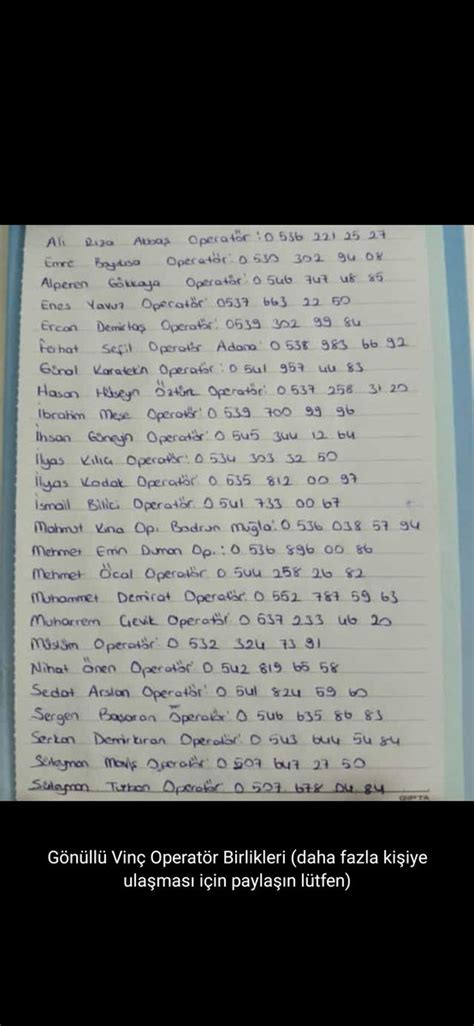 Ali Rıza Akbaş Operatör: 0 536 221 25 27
Emre Operatör: 0 530 302 94 08
Alperen Gökkaya Operatör: 0 546 747 48 85
Enes Yavuz Operatör: 0537 663 22 50
Ercan Demirtaş Operatör: 0539 302 99 84
Ferhat Sefil Operatör Adana: 0 538 983 66 92
Günal Karatekin Operatör: 0 541 957 44 83
Hasan Hüseyn Öztürk Operatör: 0 537 258 31 20
İbrahim Meşe Operatör: 0 539 700 99 96
İhsan Güneyn Operatör: 0 545 344 12 64
İlyas Kılıcı Operatör: 0 534 303 32 50
İlyas Kodak Operatör: 0 535 812 00 97
İsmail Bilici Operatör: 0 541 733 00 67
Mahmut Kına Op. Bodrum Muğla: 0 536 038 57 94
Mehmet Emin Duman Op.: 0 536 896 00 86
Mehmet Öcal Operatör: 0 544 258 26 82
Muhammet Demirat Operatör: 0 552 787 59 63
Muharrem Çevik Operatör: 0 537 233 46 20
Müslüm Operatör: 0 532 324 73 91
Nihat Önen Operatör: 0 542 819 65 58
Sedat Arslan Operatör: 0 541 824 59 60
Sergen Başaran Operatör: 0 546 635 86 83
Serkan Demirkıran Operatör: 0 543 644 54 84
Süleyman Maviş Operatör: 0 507 647 27 50
Süleyman Turhan Operatör: 0 507 678 04 84
GIPTA
Gönüllü Vinç Operatör Birlikleri (daha fazla kişiye
ulaşması için paylaşın lütfen)